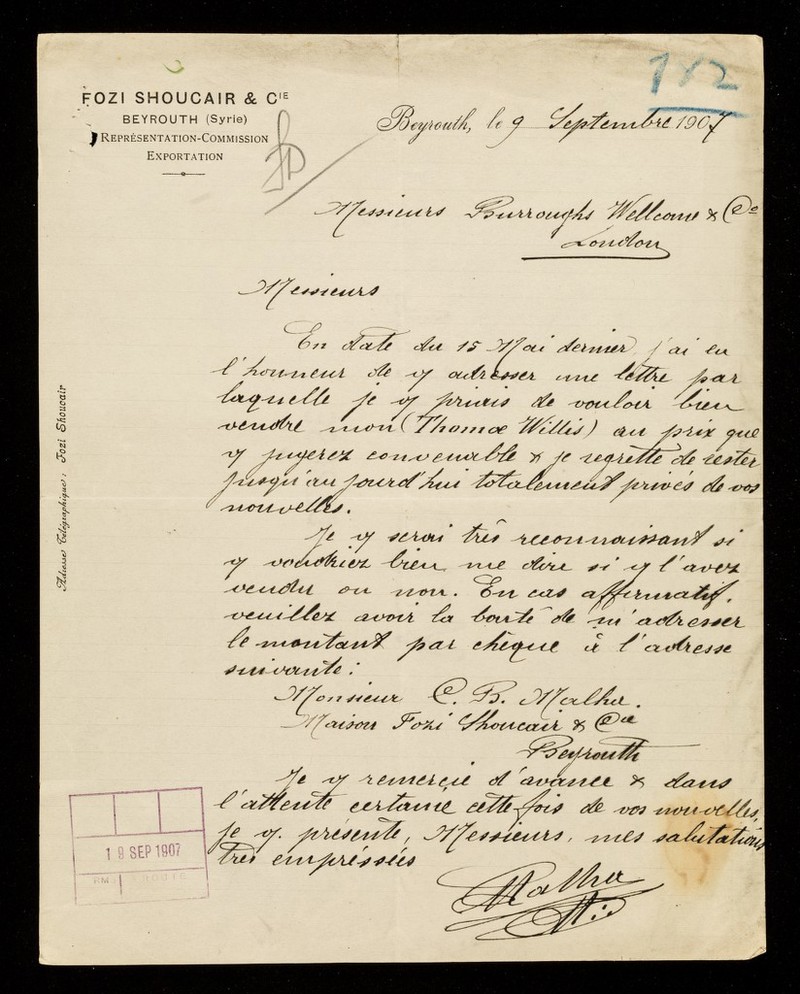 182
FOZI SHOUCAIR & CIE
BEYROUTH (Syrie)
REPRÉSENTATION-COMMISSION
EXPORTATION
Beyrouth, le 9 Septembre 1907
Messieurs Burroughs Wellcome & Co
London
Messieurs
En date du 15 Mai dernier j'ai eu
l'honneur de v/ adresser une lettre par
laquelle je v/ priais de vouloir bien
vendre mon (Thomæ Willis) au prix que
v/ jugerez convenable & je regrette de rester
jusqu'au jourd'hui totalement privés de vos
nouvelles.
Je v/ serai très reconnaissant si
v/ voudriez bien me dire si v/ l'avez
vendu ou non. En cas affirmatif,
veuillez avoir la bonté de m'adresser
le montant par chèque à l'adresse
suivante :
Monsieur C. B. Malha.
Maison Fozi Shoucair & Cie
Beyrouth
Je v/ remercie d'avance & dans
l'attente certaine cette fois de vos nouvelles,
je v/. présente, Messieurs, mes salutations
très empréssées
Malha
Adresse Télégraphique: Fozi Shoucair
19 SEP 1907